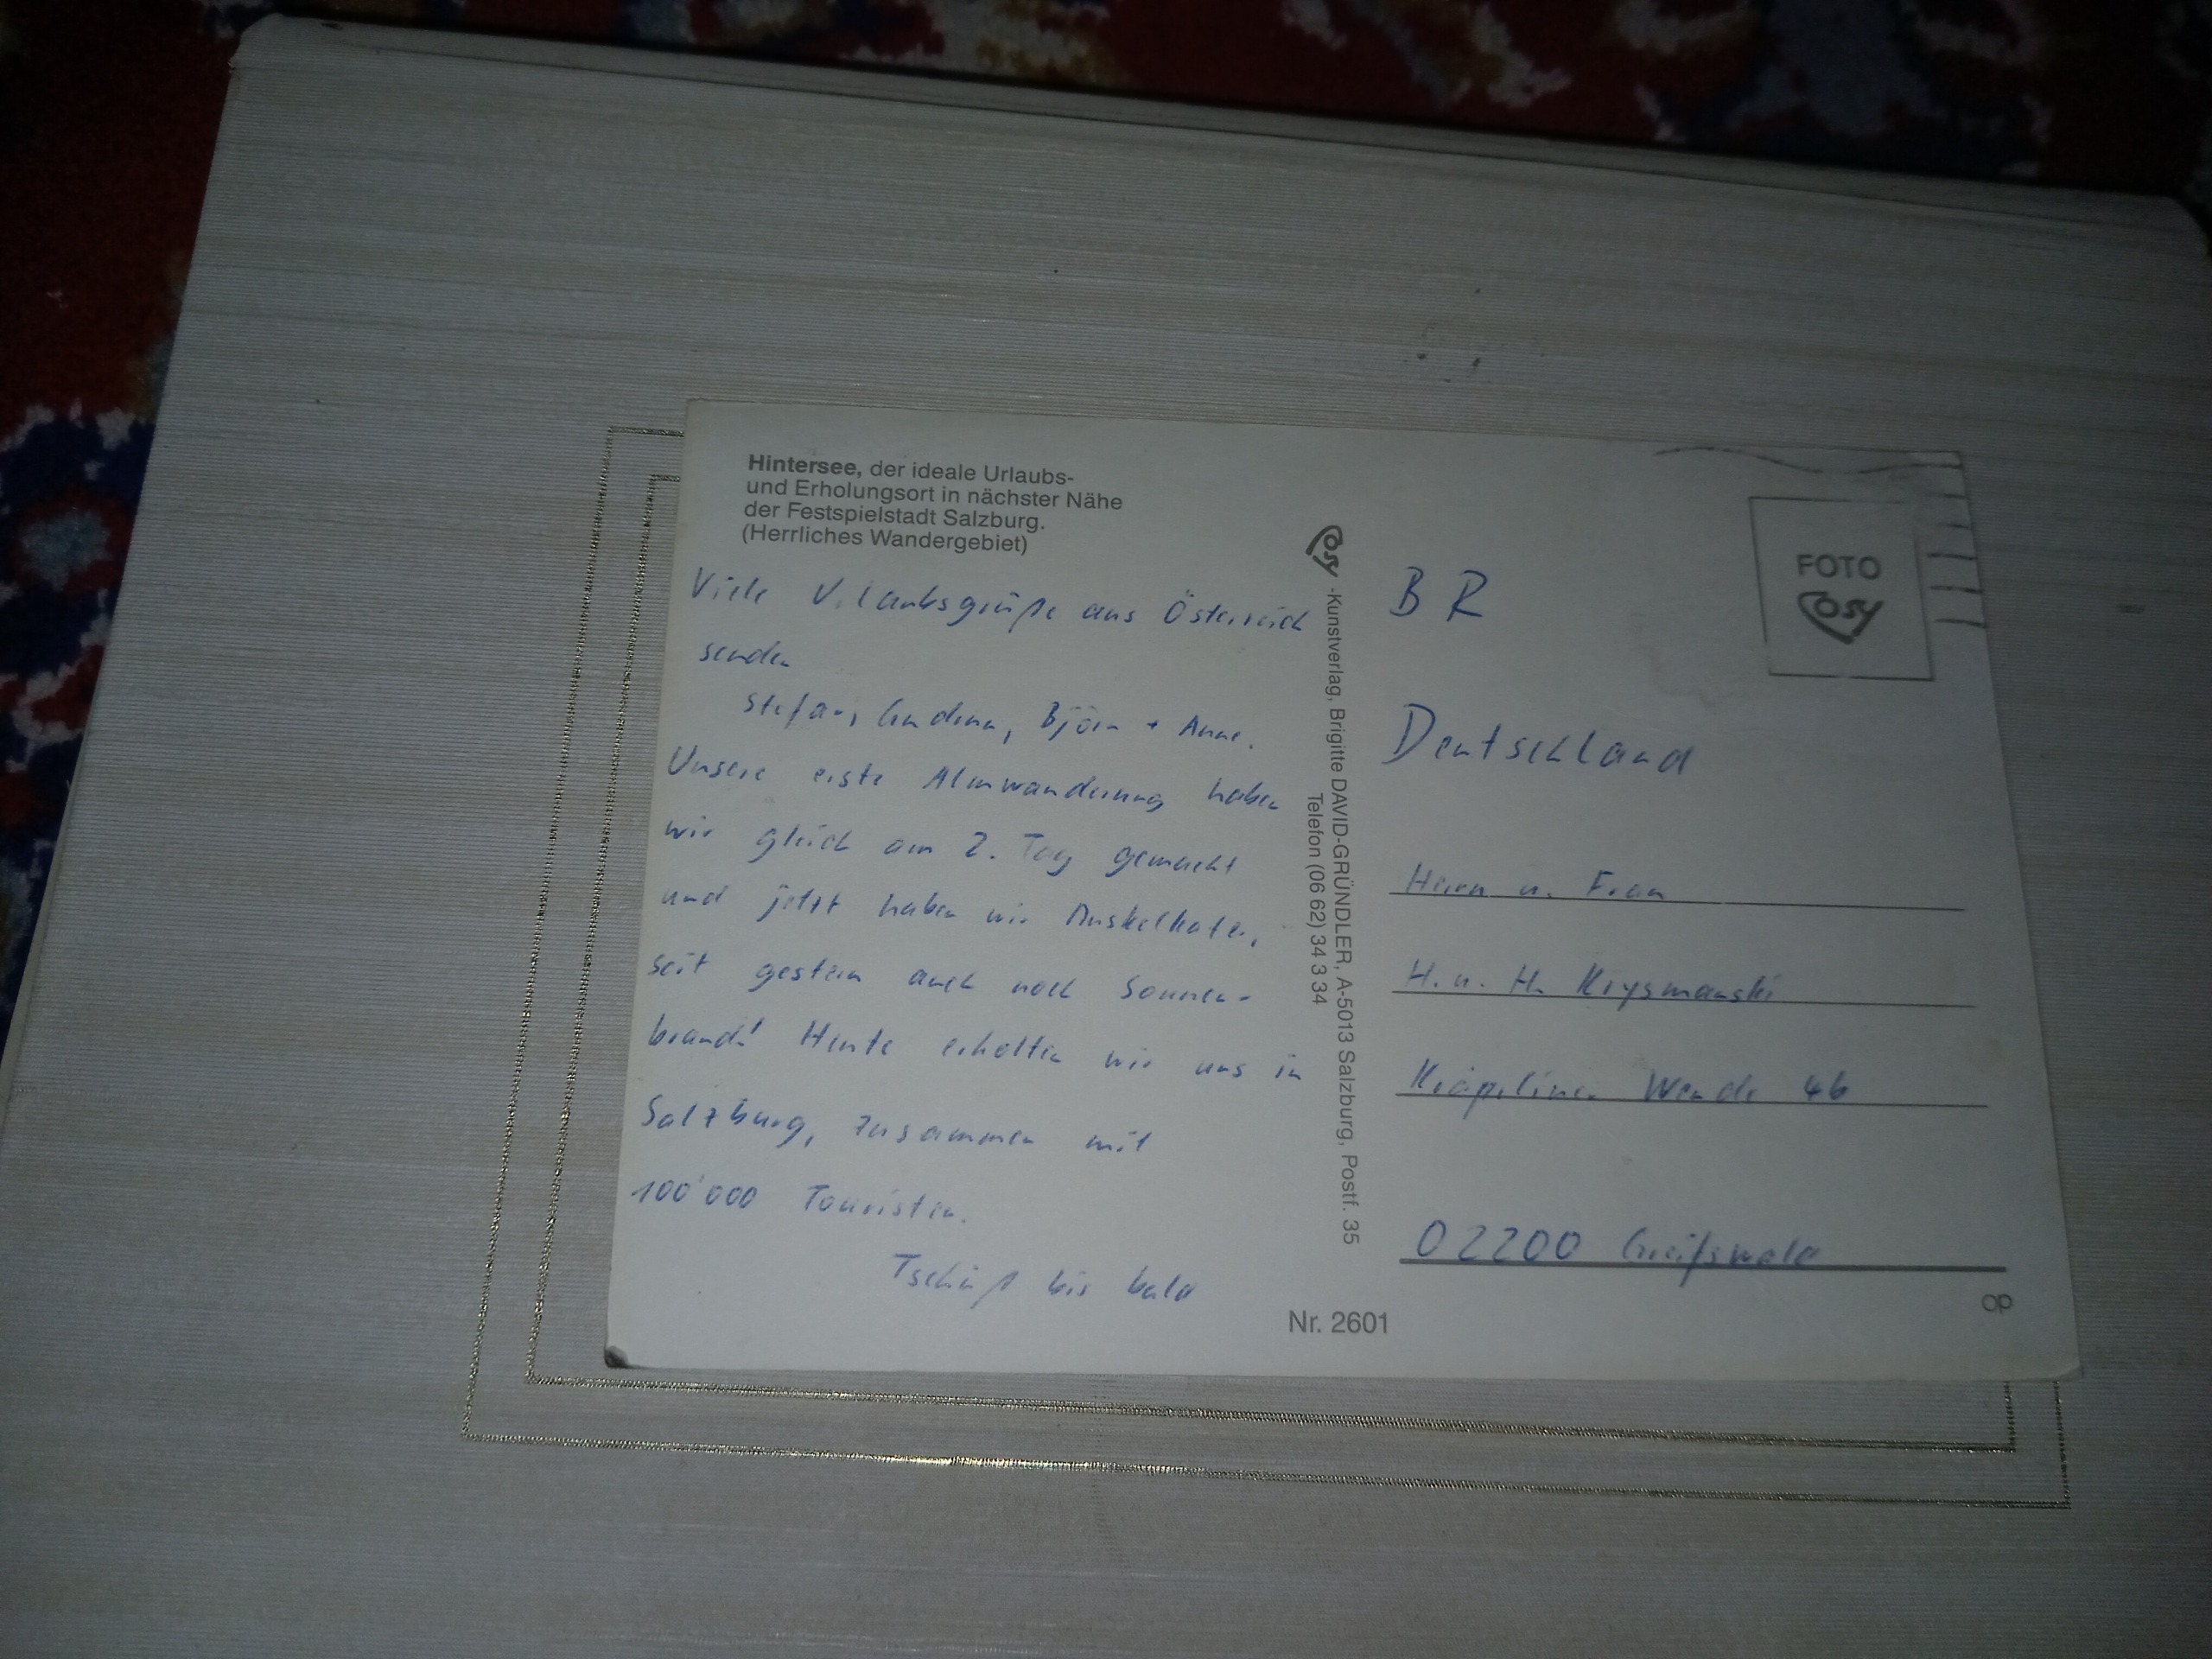 Hintersee, der ideale Urlaubs-
und Erholungsort in nächster Nähe
der Festspielstadt Salzburg.
(Herrliches Wandergebiet)
Viele Urlaubsgrüße aus Österreich
senden
Stefan, Gudrun, Björn + Anne.
Unsere erste Almwanderung haben
wir gleich am 2. Tag gemacht
und jetzt haben wir Muskelkater,
seit gestern auch noch Sonnen-
brand! Heute erholen wir uns in
Salzburg, zusammen mit
100'000 Touristen.
Tschüß bis bald
Cosy -Kunstverlag, Brigitte DAVID-GRÜNDLER, A-5013 Salzburg, Postf. 35
Telefon (06 62) 34 3 34
Nr. 2601
FOTO
Cosy
BR
Deutschland
Herrn u. Frau
H. u. H. Krysmanski
Kröpeliner Wende 4b
O 2200 Greifswald